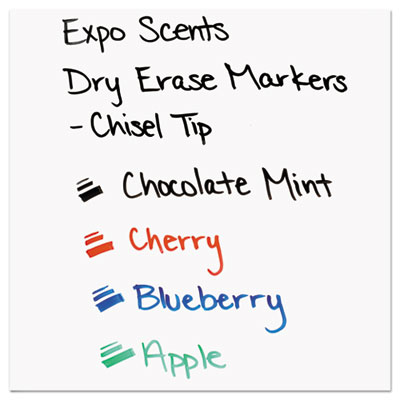 Expo Scents
Dry Erase Markers
- Chisel Tip
Chocolate Mint
Cherry
Blueberry
Apple